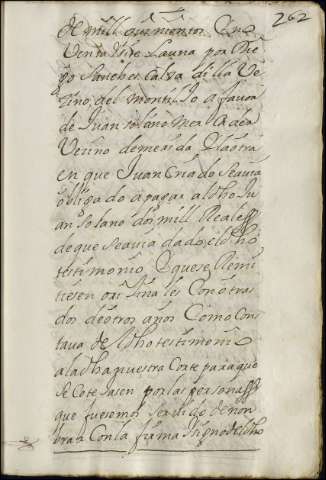 262
de mill quinientos Cin
Venta tres la una por Die
go Sanches Calva dilla Ve
Zino del montijo a favor
de Juan solano
Vezino de merida Y la otra
en que Juan Criado se avia
obligado a pagar al dho Ju
an solano dos mill Reales
de que se avia dado el dho
testimonio Y que se Remi
tiesen ori Jina les Con otras
dos de otros años Como Cons
tava de el dho testimonio
a la dha nuestra Corte para que
se Cote Jasen por las personas
que fuesemos servido de non
brar Con la firma Signo del dho